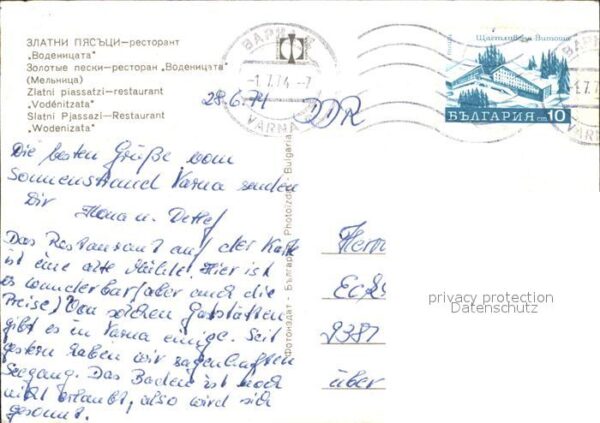 ЗЛАТНИ ПЯСЪЦИ—ресторант
„Воденицата"
Золотые пески—ресторан „Воденицата"
(Мельница)
Zlatni piassatzi—restaurant
„Vodénitzata"
Slatni Pjassazi—Restaurant
"Wodenizata"
ВАРНА
-1.7.74.-7
VARNA
Щастливеца-Витоша
поща
БЪЛГАРИЯ ст 10
ВА
1.7.7
VARN
28.6.74 DDR
Die besten Grüße vom
Sonnenstrand Varna senden
Dir Ilona u. Detlef
Das Restaurant auf der Karte
ist eine alte Mühle. Hier ist
es wunderbar (aber auch die
Preise) Von solchen Gaststätten
gibt es in Varna einige. Seit
gestern haben wir sagenhaften
Seegang. Das Baden ist noch
nicht erlaubt, also wird sich
gesonnt.
Фотоиздат - България Photoizdat - Bulgaria
Herrn
Eck
9387
über
privacy protection
Datenschutz